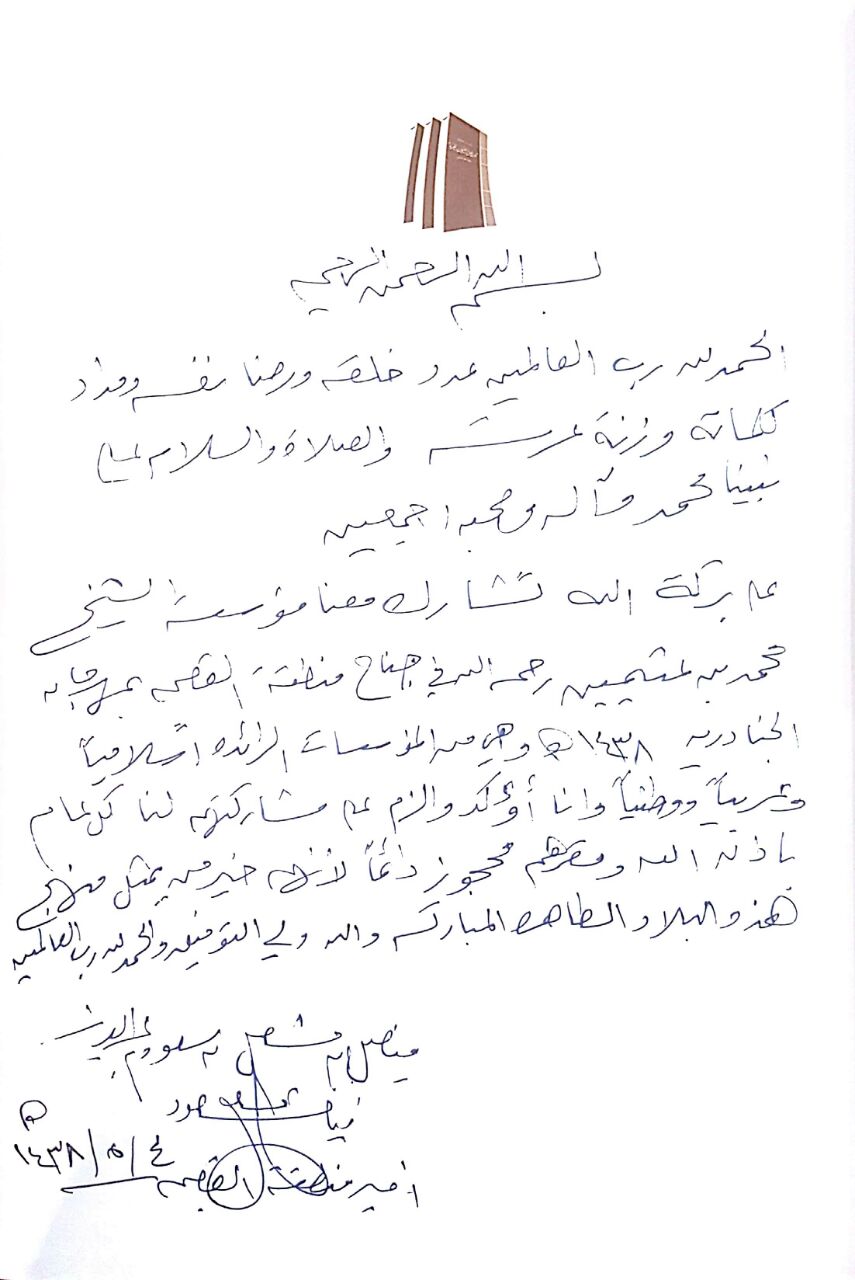 بسم الله الرحمن الرحيم
الحمد لله رب العالمين عدد خلقه ورضا نفسه ومداد
كلماته وزنة عرشه والصلاة والسلام على
نبينا محمد وآله وصحبه اجمعين
على بركة الله تشارك معنا مؤسسة الشيخ
محمد بن عثيمين رحمه الله في جناح منطقة القصيم بمهرجان
الجنادرية ١٤٣٨هـ وهي من المؤسسات الرائدة اسلامياً
وعربياً ووطنياً وانا أؤكد والزم على مشاركتهم لنا كل عام
باذن الله ومقرهم محجوز دائماً لأنهم خير من يمثل منهج
هذه البلاد الطاهرة المباركة والله ولي التوفيق والحمد لله رب العالمين
فيصل بن مشعل بن سعود بن عبدالعزيز
آل سعود
أمير منطقة القصيم
١٤٣٨/٥/٤هـ